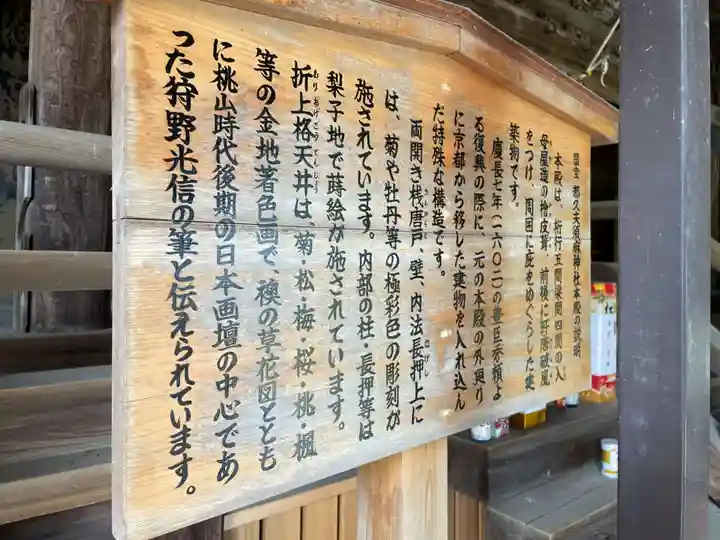 国宝 都久夫須麻神社本殿の説明
本殿は、桁行五間梁間四間の入
母屋造の檜皮葺、前後に軒唐破風
をつけ、周囲に庇をめぐらした建
築物です。
慶長七年(一六〇二)の豊臣秀頼よ
る復興の際に、元の本殿の外廻り
に京都から移した建物を入れ込ん
だ特殊な構造です。
両開き桟唐戸、壁、内法長押上に
は、菊や牡丹等の極彩色の彫刻が
施されています。内部の柱・長押等は
梨子地で蒔絵が施されています。
折上格天井は、菊・松・梅・桜・桃・楓
等の金地著色画で、襖の草花図ととも
に桃山時代後期の日本画壇の中心であ
った狩野光信の筆と伝えられています。